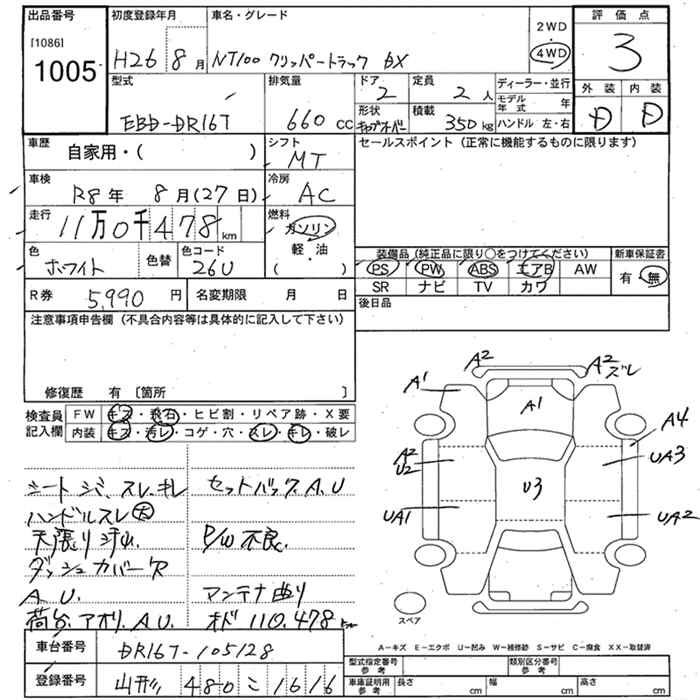 出品番号 初度登録年月 車名・グレード 2WD ・ 4WD 評価点
[1086] 1005 H26 8月 NT100 クリッパートラック DX 3
型式 排気量 ドア 定員 ディーラー・並行 外装 内装
EBD-DR16T 660 CC 2 2人 モデル年式 年 D D
形状 キャブオーバー 積載 350kg ハンドル 左・右
車歴 自家用・( ) シフト MT セールスポイント (正常に機能するものに限ります)
車検 R8年 8月(27日) 冷房 AC
走行 11万0千478km 燃料 ガソリン・軽・油 ( )
色 ホワイト 色替 色コード 26U
装備品 (純正品に限り○をつけてください) 新車保証書
PS PW ABS エアB AW 有・無
SR ナビ TV カワ
R券 5,990円 名変期限 月 日 後日品
注意事項申告欄 (不具合内容等は具体的に記入して下さい)
修復歴 有 [箇所 ]
検査員記入欄 FW キズ・飛石・ヒビ割・リペア跡・X要
内装 キズ・汚レ・コゲ・穴・スレ・キレ・破レ
シート シミ、スレ、キレ セットバック A、U
ハンドルスレ 大
天張り汚れ P/W 不良
ダッシュカバー欠
A、U、 アンテナ曲り
荷台、アオリ、A、U オド 110,478km
A2 A2 ズレ
A1 A1
A4
A2 U2 UA3
U3
UA1 UA2
スペア
A-キズ E-エクボ U-凹み W-補修跡 S-サビ C-腐食 XX-取替済
車台番号 DR16T-105128
登録番号 山形 480 こ 1616
型式指定番号 参考 類別区分番号 参考
車庫証明用 参考 長さ cm 幅 cm 高さ cm